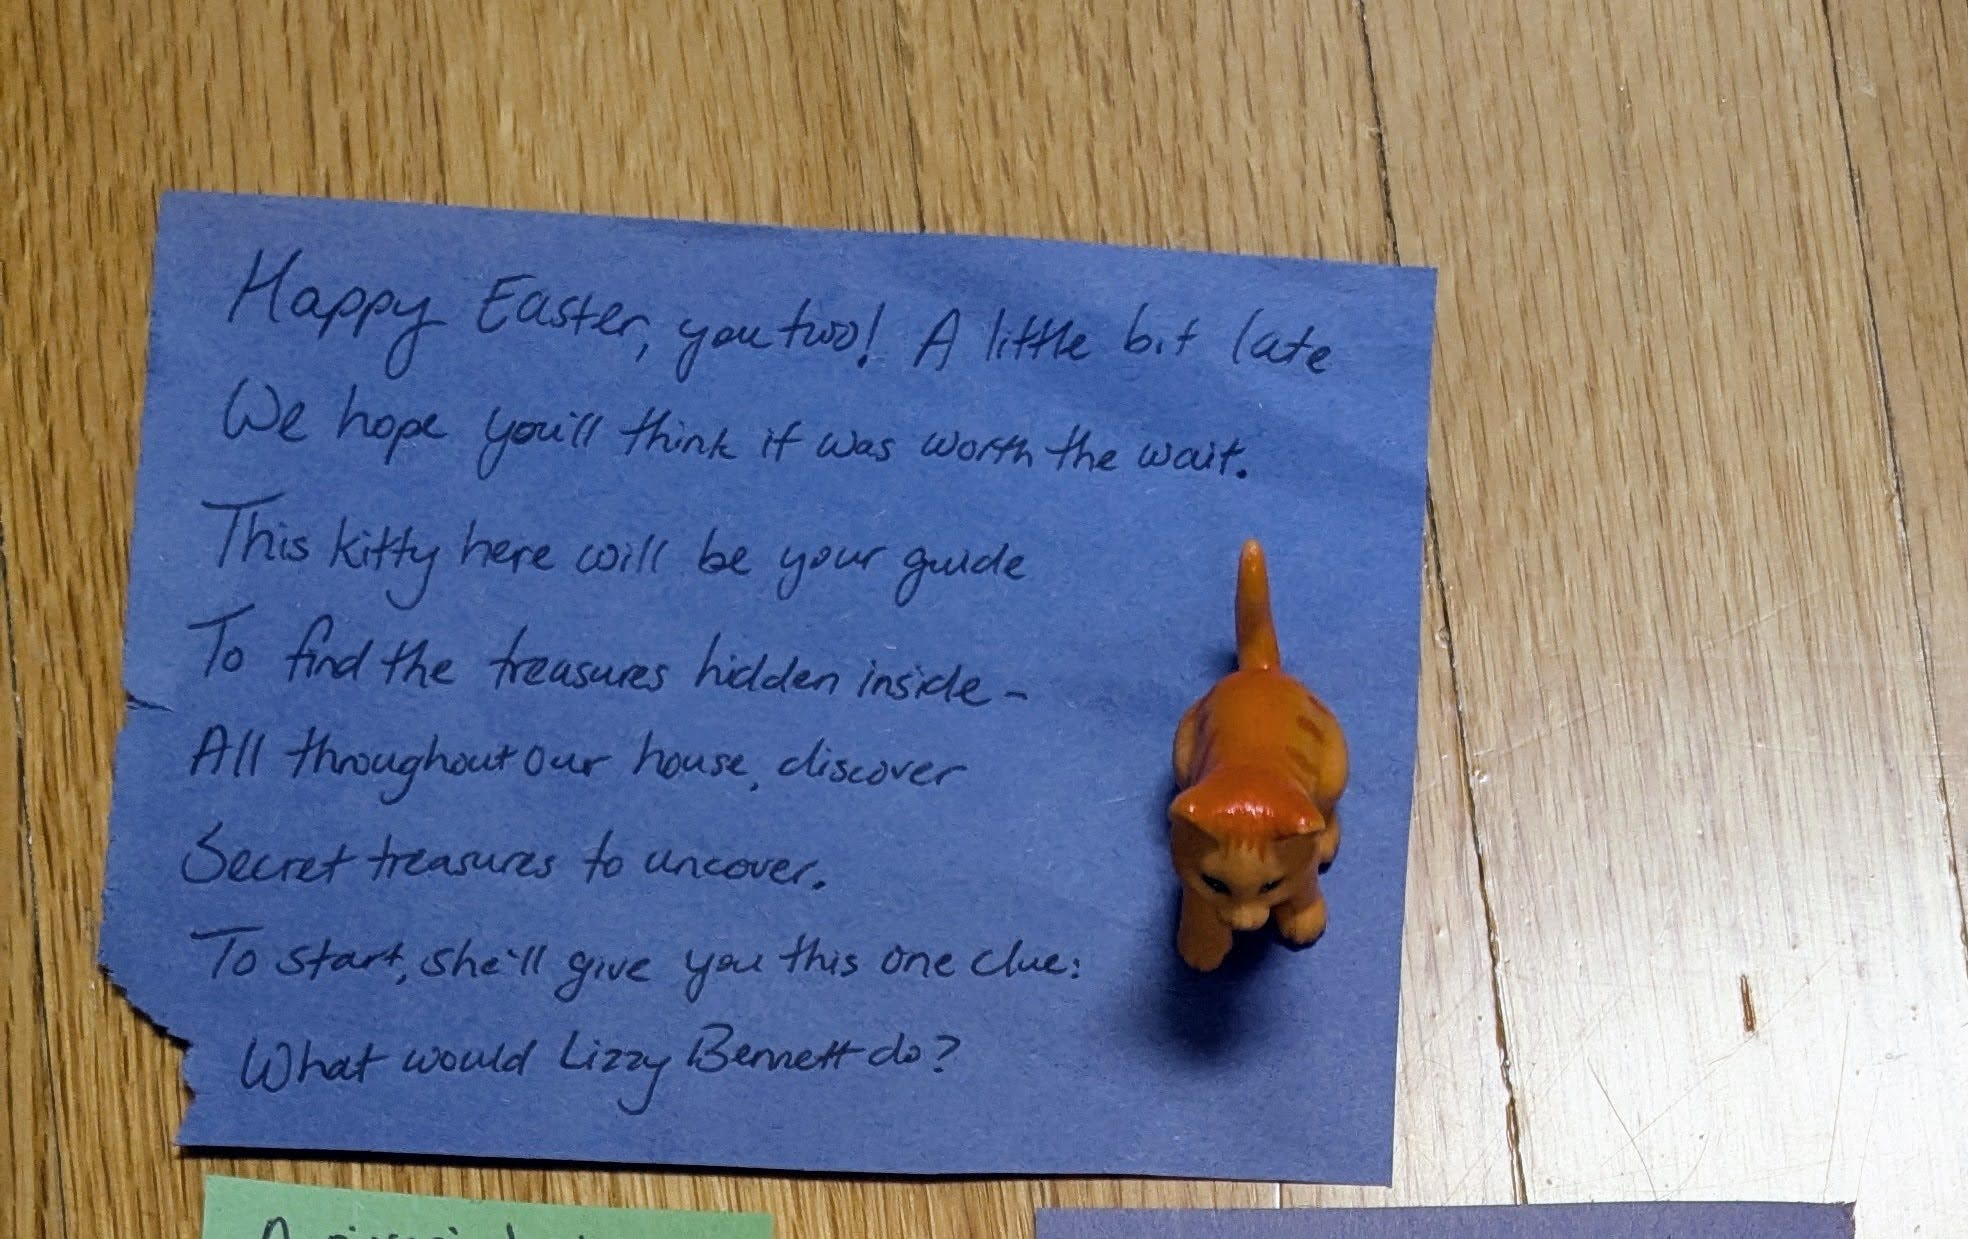 Happy Easter, you two! A little bit late
We hope you'll think it was worth the wait.
This kitty here will be your guide
To find the treasures hidden inside -
All throughout our house, discover
Secret treasures to uncover.
To start, she'll give you this one clue:
What would Lizzy Bennett do?
A